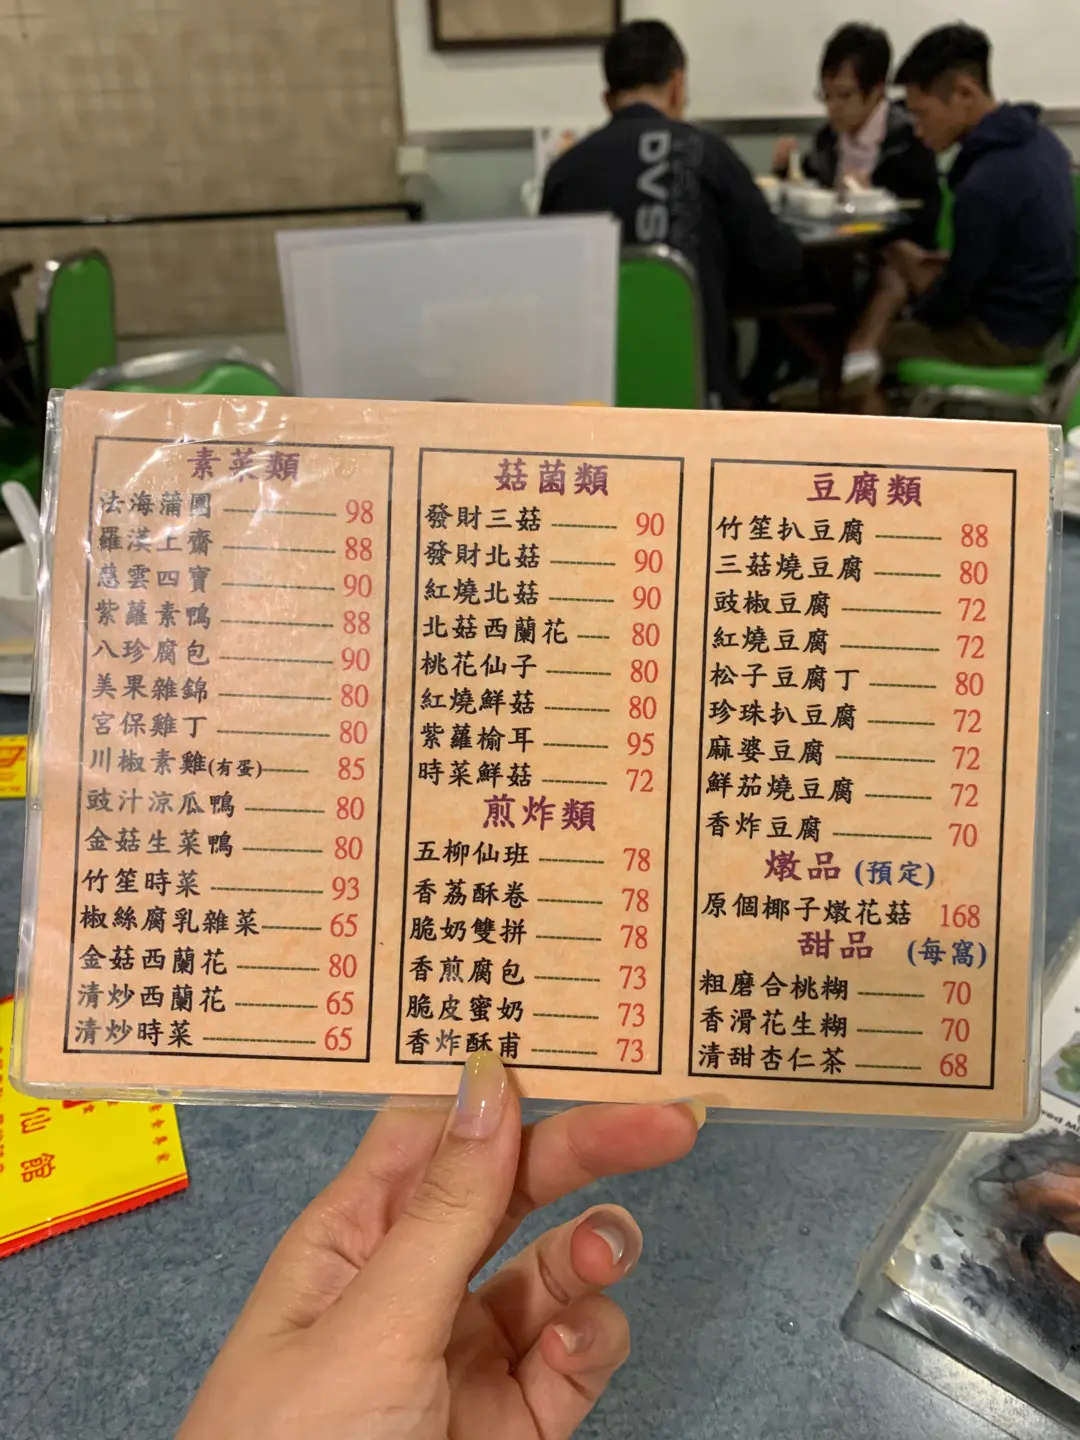 素菜類
法海蒲團 98
羅漢上齋 88
慈雲四寶 90
紫蘿素鴨 88
八珍腐包 90
美果雜錦 80
宮保雞丁 80
川椒素雞(有蛋) 85
豉汁涼瓜鴨 80
金菇生菜鴨 80
竹笙時菜 93
椒絲腐乳雜菜 65
金菇西蘭花 80
清炒西蘭花 65
清炒時菜 65
菇菌類
發財三菇 90
發財北菇 90
紅燒北菇 90
北菇西蘭花 80
桃花仙子 80
紅燒鮮菇 80
紫蘿榆耳 95
時菜鮮菇 72
煎炸類
五柳仙班 78
香荔酥卷 78
脆奶雙拼 78
香煎腐包 73
脆皮蜜奶 73
香炸酥甫 73
豆腐類
竹笙扒豆腐 88
三菇燒豆腐 80
豉椒豆腐 72
紅燒豆腐 72
松子豆腐丁 80
珍珠扒豆腐 72
麻婆豆腐 72
鮮茄燒豆腐 72
香炸豆腐 70
燉品 (預定)
原個椰子燉花菇 168
甜品 (每窩)
粗磨合桃糊 70
香滑花生糊 70
清甜杏仁茶 68
DVS
仙館